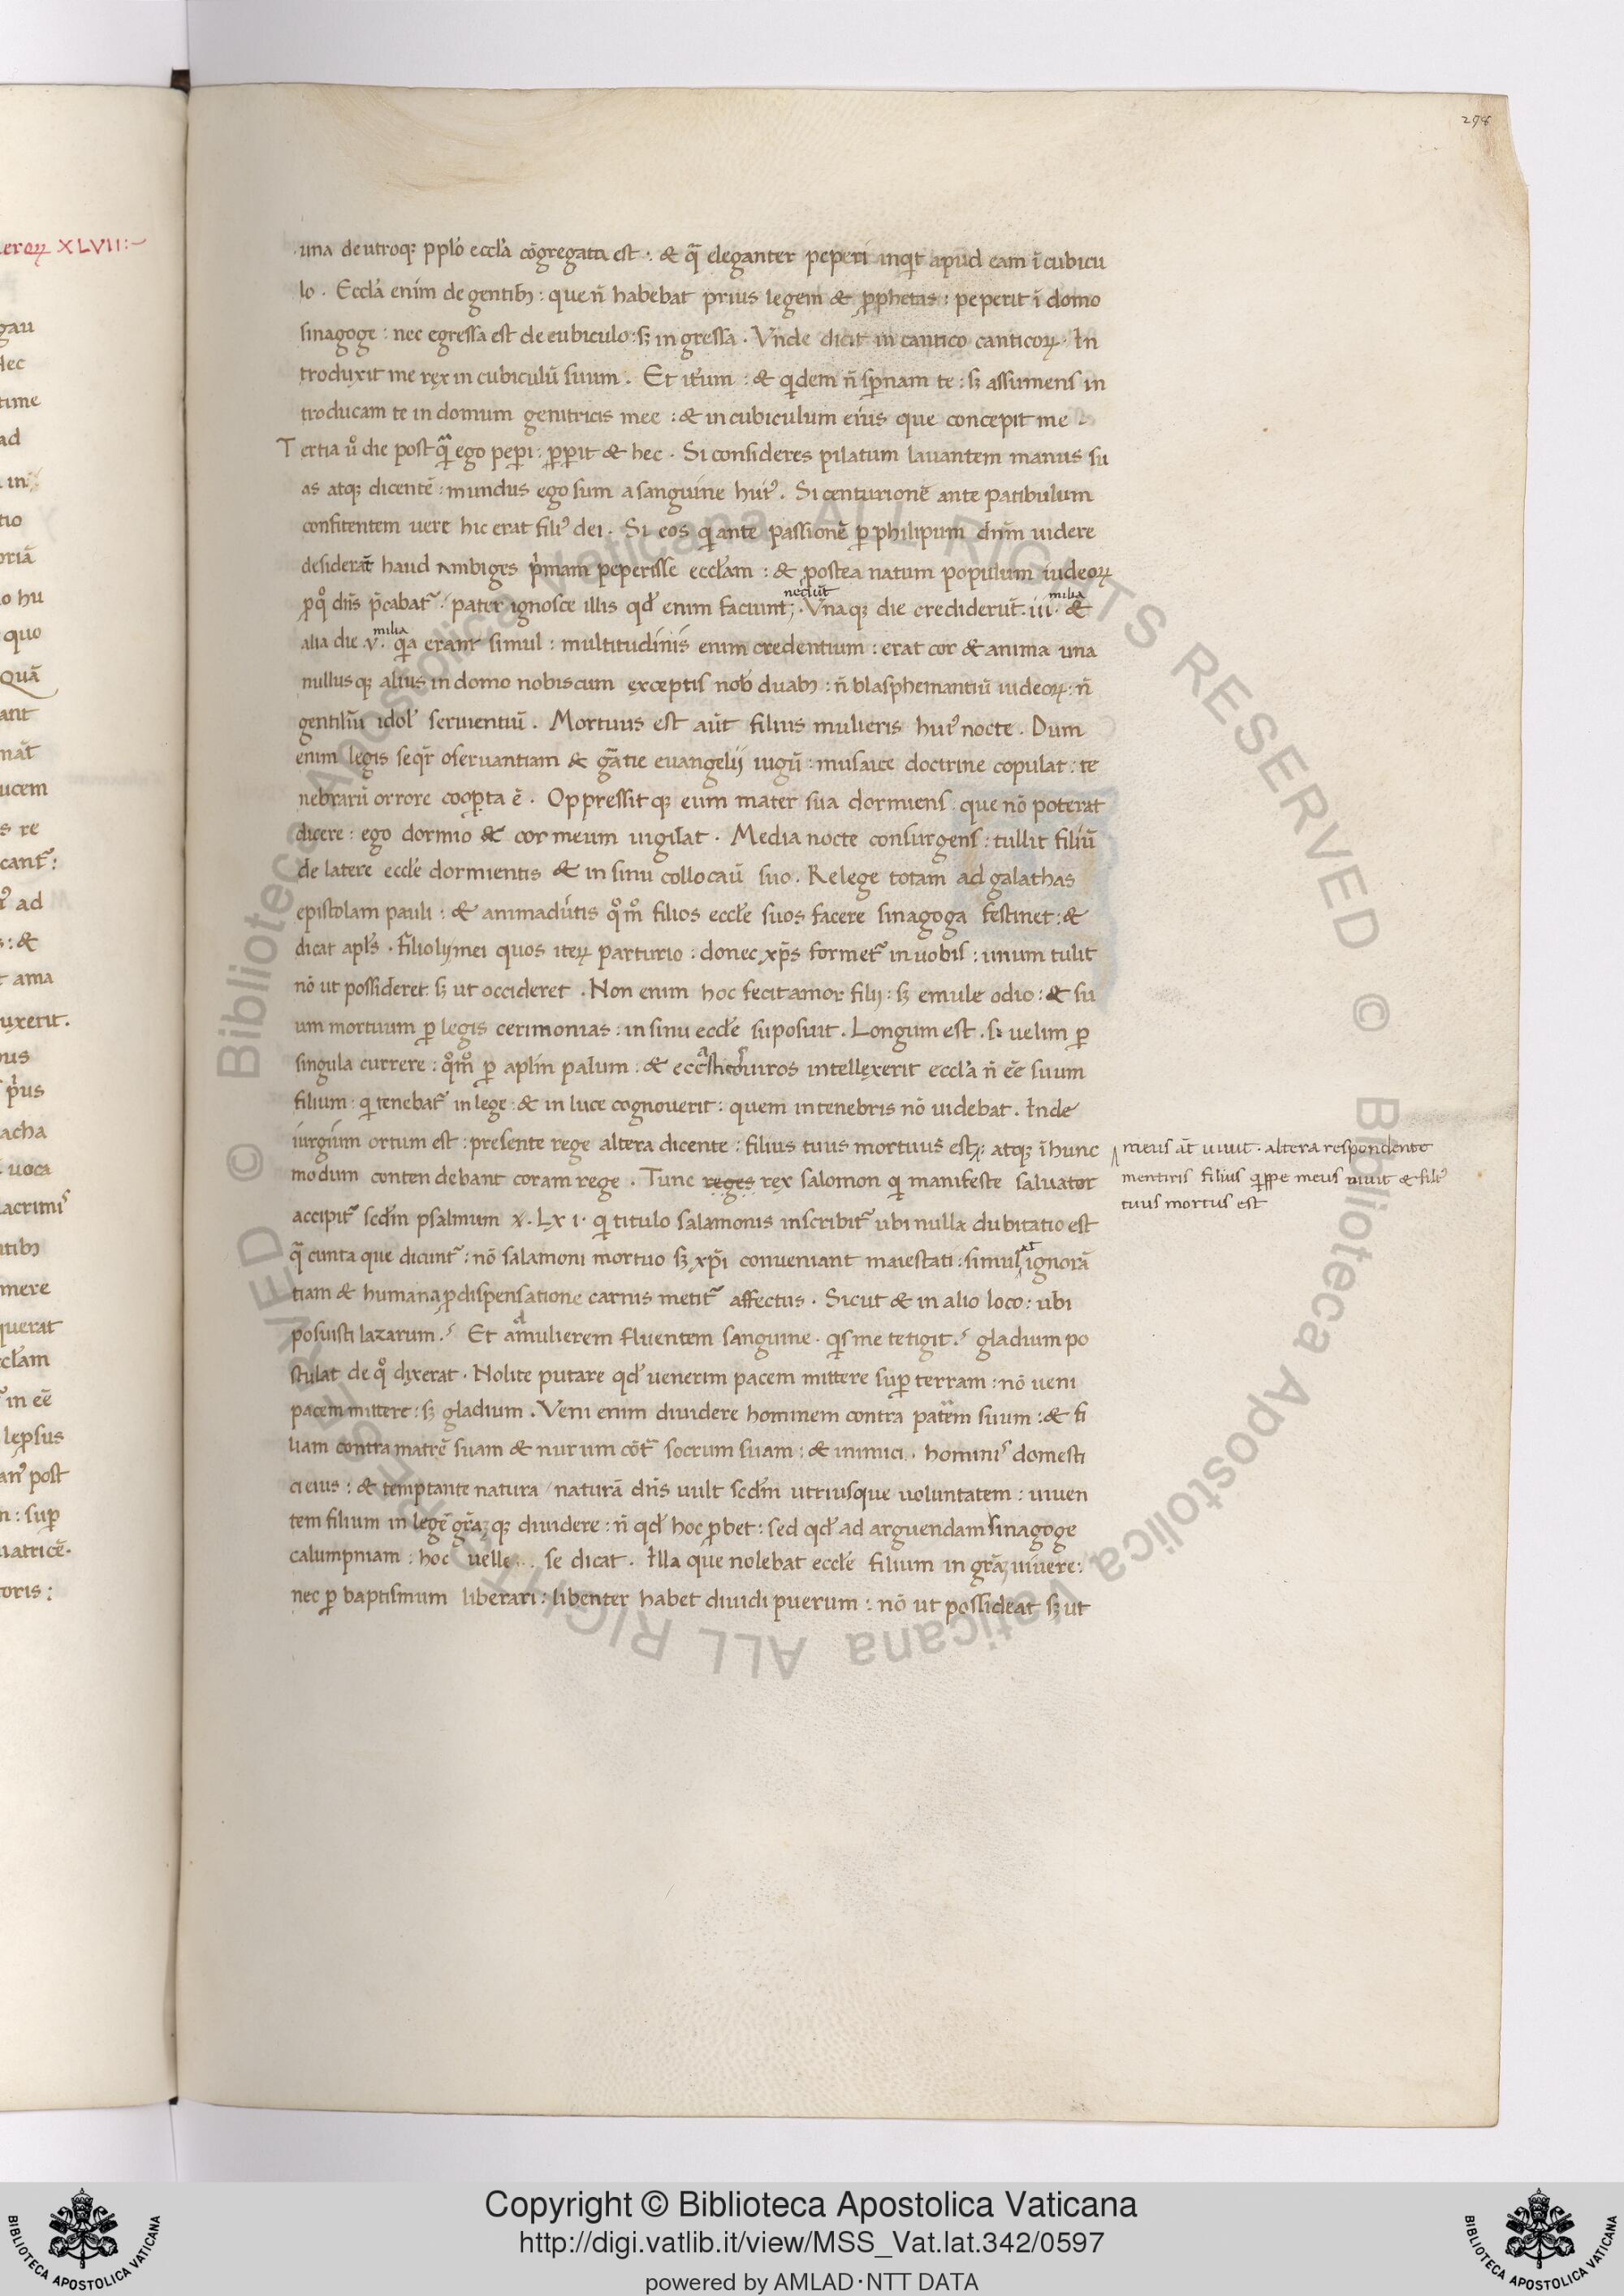 298
una de utroq; pplo᷎ eccl̃a cõgregata est : & q̃ eleganter peperi inq̇t apud eam ĩ cubicu
lo . Eccl̃a enim de gentib; : que ñ habebat prius legem & ꝓphetas : peperit ĩ domo
sinagoge : nec egressa est de cubiculo : sꝫ in gressa . Vnde dicit in cantico canticoꝝ . In
troduxit me rex in cubiculũ suum . Et it̃um : & qͥdem ñ sꝑnam te : sꝫ assumens in
troducam te in domum genitricis mee : & in cubiculum eius que concepit me
Tertia ů die post qᷓ ego peꝑi : ꝑꝑit & hec . Si consideres pilatum lavantem manus su
as atq; dicentẽ : mundus ego sum a sanguine huiꝰ . Si centurionẽ ante patibulum
confitentem uere hic erat filiꝰ dei . Si eos qͥ ante passionẽ ꝑ philipum dñm uidere
desiderãt haud ambiges pͥmam peperisse eccl̃am : & postea natum populum iudeoꝝ
ꝓ qͦ dñs p̃cabatᷣ . pater ignosce illis qd̓ enim faciunt nesciũt ; Vnaq; die crediderũt . iii . milia &
alia die . v . milia qͥa erant simul : multitudinis enim credentium : erat cor & anima una
nullusq; alius in domo nobiscum exceptis nob̓ duab; : ñ blasphemantiũ iudeoꝝ : ñ
gentiliũ idol̓ seruientiũ . Mortuus est aũt filius mulieris huiꝰ nocte . Dum
enim legis seqᷣ oseruantiam & gr̃atie euangelij iugũ : musaice doctrine copulat : te
nebrarũ orrore cooꝑta ẽ . Oppressitq; eum mater sua dormiens : que nõ poterat
dicere : ego dormio & cor meum uigilat . Media nocte consurgens : tullit filiũ
de latere eccl̃e dormientis & in sinu collocaũ suo . Relege totam ad galathas
epistolam pauli : & animadũtis qͦmͦ filios eccl̃e suos facere sinagoga festinet : &
dicat apl̃s . filiolij mei quos iteꝝ parturio : donec xp̃s formetᷣ in uobis : unum tulit
nõ ut possideret sꝫ ut occideret . Non enim hoc fecit amor filij : sꝫ emule odio : & su
um mortuum ꝑ legis cerimonias : in sinu eccl̃e suposuit . Longum est . si uelim ꝑ
singula currere : qͦmͦ ꝑ apl̃m paulum : & uiros intellexerit eccl̃a ñ eẽ suum
filium : qͥ tenebatᷣ in lege : & in luce cognouerit : quem in tenebris nõ uidebat . Inde
iurgium ortum est : presente rege altera dicente : filius tuus mortuus est : atq; ĩ hunc
modum contendebant coram rege . Tunc reges rex salomon qͥ manifeste saluator
accipitᷣ scd̃m psalmum x . Lx i . qͥ titulo salamonis inscribitᷣ ubi nulla dubitatio est
qᷓ cunta que dicuntᷣ : nõ salamoni mortuo sꝫ xp̃i conueniant maiestati : simulat ignorã
tiam & humana ꝓ dispensatione carnis metitᷣ affectus . Sicut & in alio loco : ubi
posuisti lazarum . Et ad mulierem fluentem sanguine . qͥs me tetigit . gladium po
stulat de qͦ dixerat . Nolite putare qd̓ uenerim pacem mittere suꝑ terram : nõ ueni
pacem mittere : sꝫ gladium . Veni enim diuidere hominem contra patrem suum : & fi
liam contra matrẽ suam & nurum cõtᷓ socrum suam : & inimici . hominiˢ domesti
ci eius : & temptante natura naturã dñs uult scd̃m utriusque uoluntatem : uiuen
tem filium in legẽ gr̃az q; diuidere : ñ qd̓ hoc ꝓbet : sed qd̓ ad arguendam sinagoge
calumpniam : hoc uelle se dicat . Illa que nolebat eccl̃e filium in gr̃az uiuere :
nec ꝑ baptismum liberari : libenter habet diuidi puerum : nõ ut possideat sꝫ ut
meus aũt uiuit . altera respondente
mentiris filius qͥppe meus uiuit & filiꝰ
tuus mortus est
eroꝝ XLVII :
Copyright © Biblioteca Apostolica Vaticana
http://digi.vatlib.it/view/MSS_Vat.lat.342/0597
powered by AMLAD·NTT DATA
BIBLIOTECA APOSTOLICA VATICANA
BIBLIOTECA APOSTOLICA VATICANA
© Biblioteca Apostolica Vaticana ALL RIGHTS RESERVED © Biblioteca Apostolica Vaticana ALL RIGHTS RESERVED